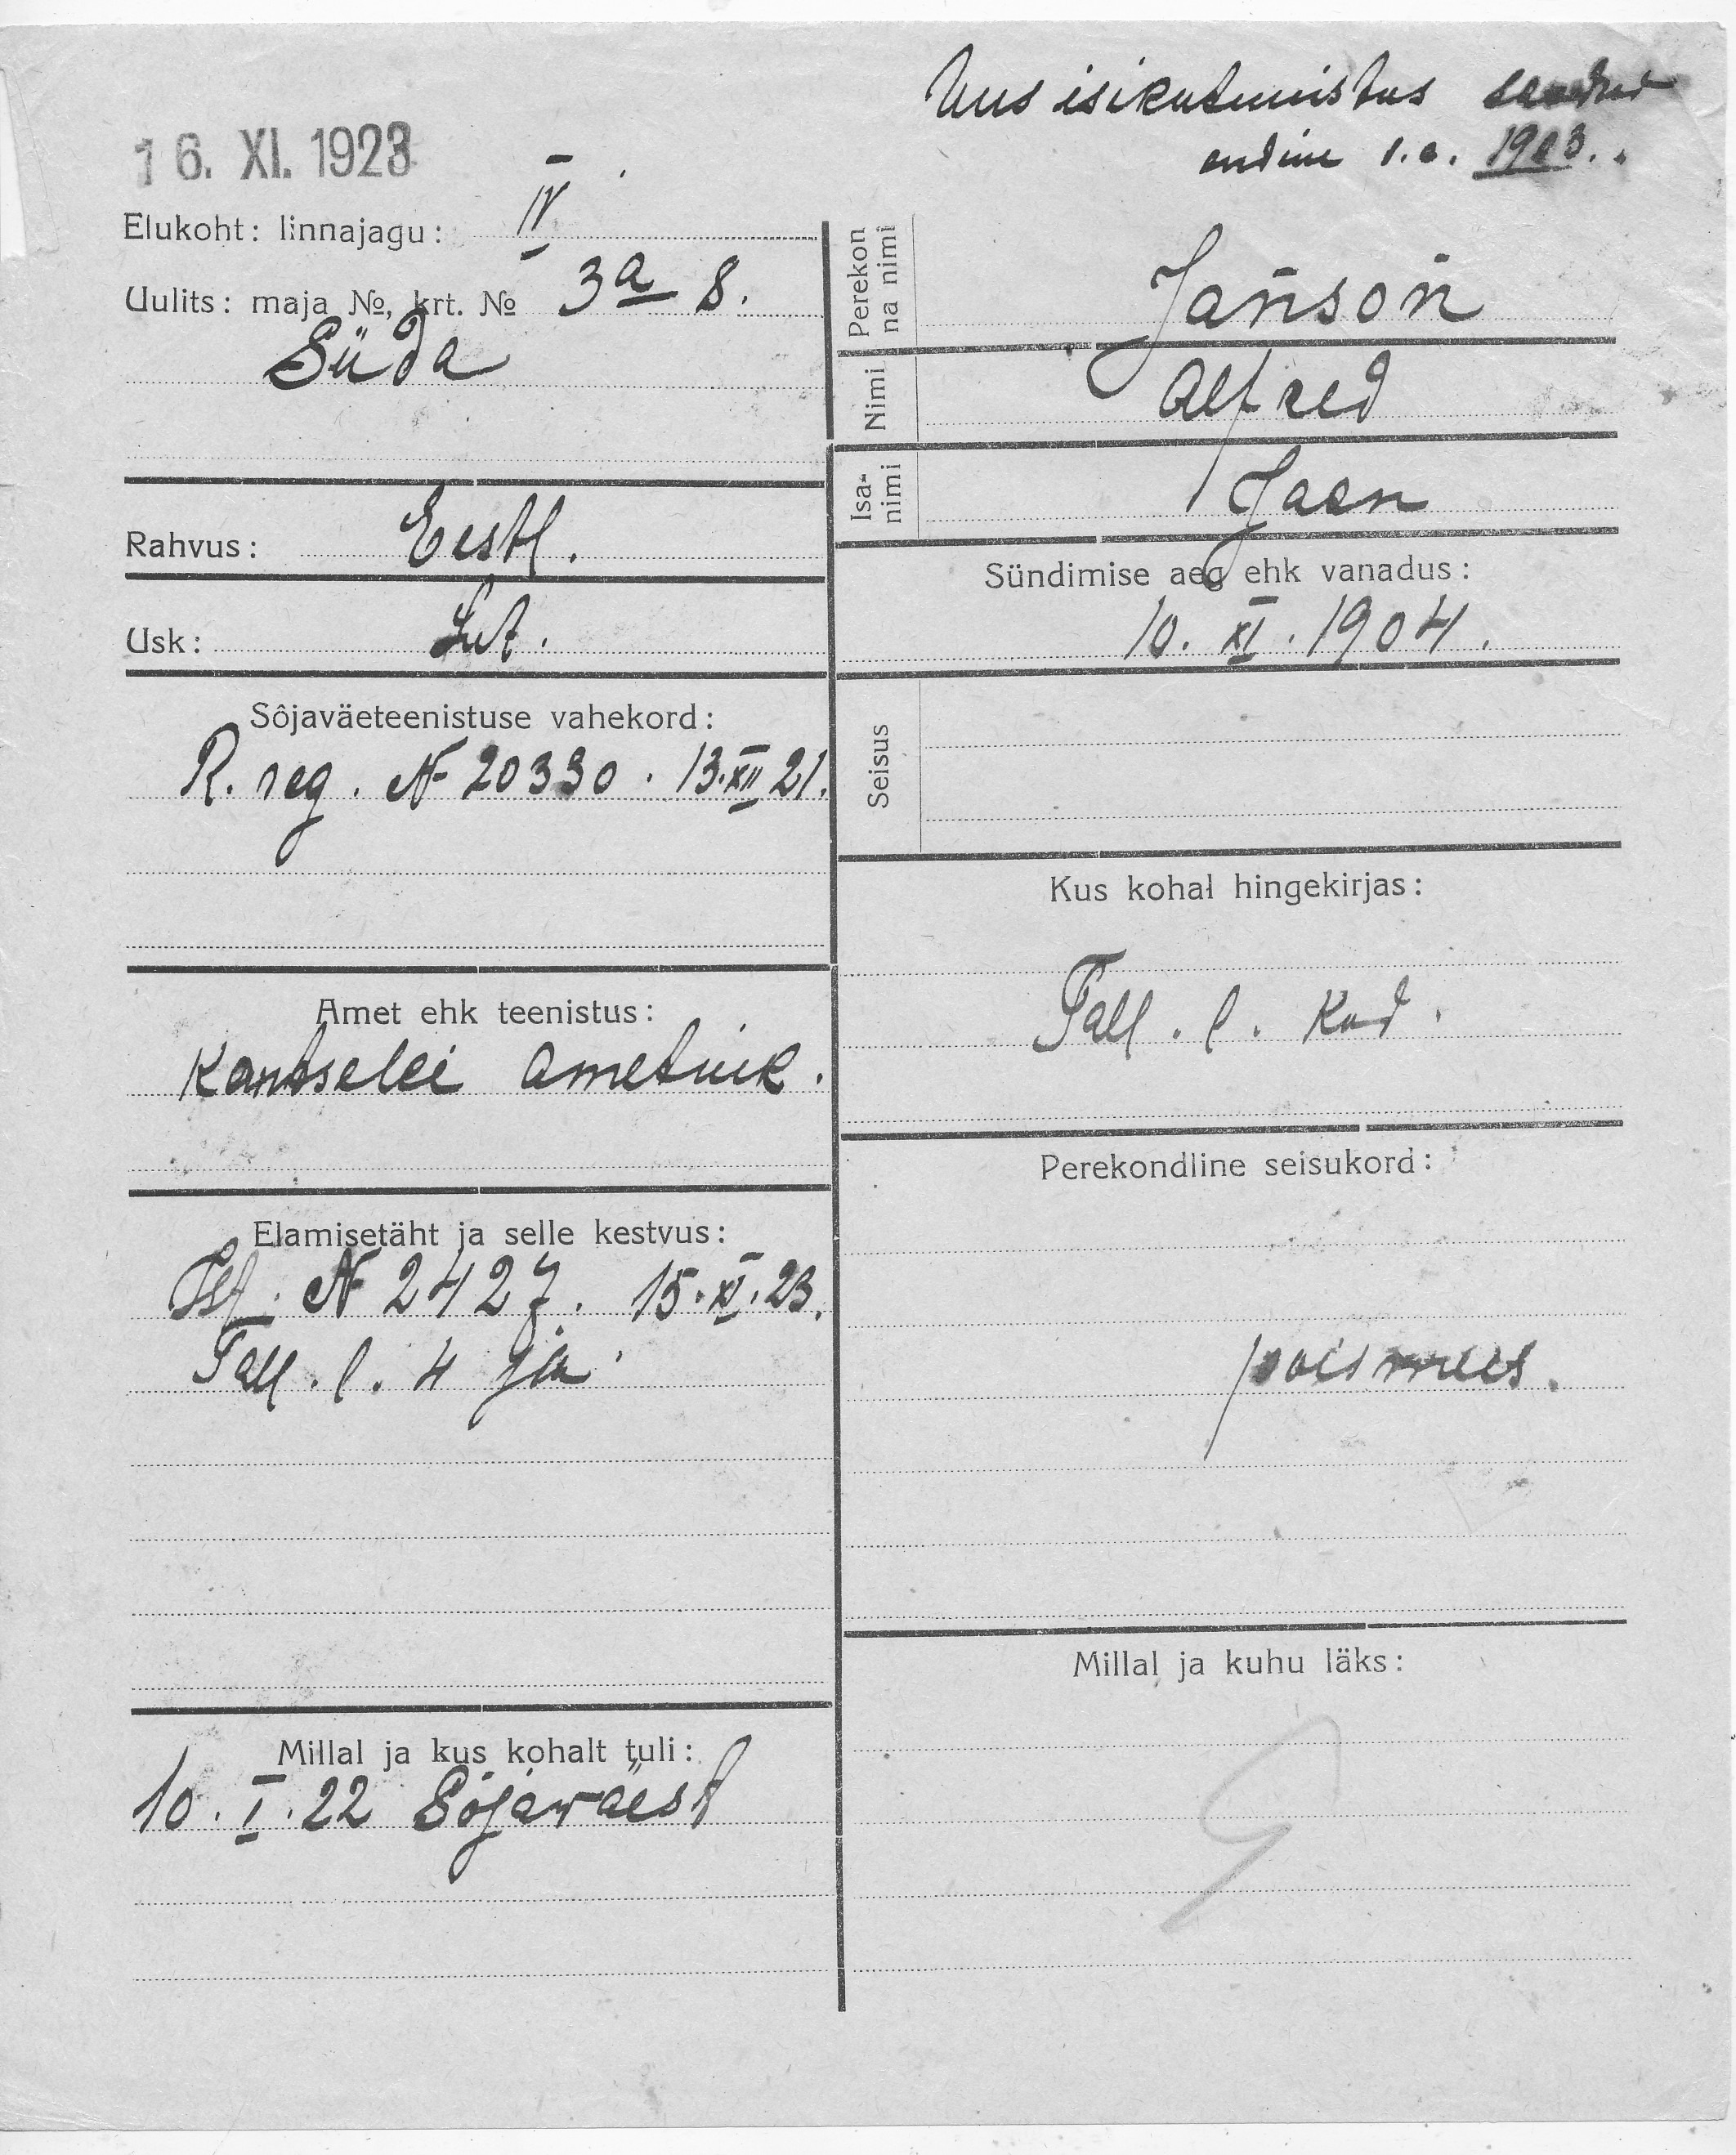 Uus isikutunnistus saadud
endine s.a. 1903.
16. XI. 1923
Elukoht: linnajagu: IV
Uulits: maja №, krt. № 3a 8.
Süda
Rahvus: Eestl.
Usk: Lut.
Sôjaväeteenistuse vahekord:
R. reg. № 20330. 13.XII 21.
Amet ehk teenistus:
Kantselei ametnik.
Elamisetäht ja selle kestvus:
№ 2427. 15.XI.23.
Tall. l. 4 jsk.
Millal ja kus kohalt tuli:
10. I. 22 Sõjaväest
Perekonna nimi
Janson
Nimi
Alfred
Isa-nimi
Jaan
Sündimise aeg ehk vanadus:
10. XI. 1904.
Seisus
Kus kohal hingekirjas:
Tall. l. kod.
Perekondline seisukord:
poismees.
Millal ja kuhu läks: